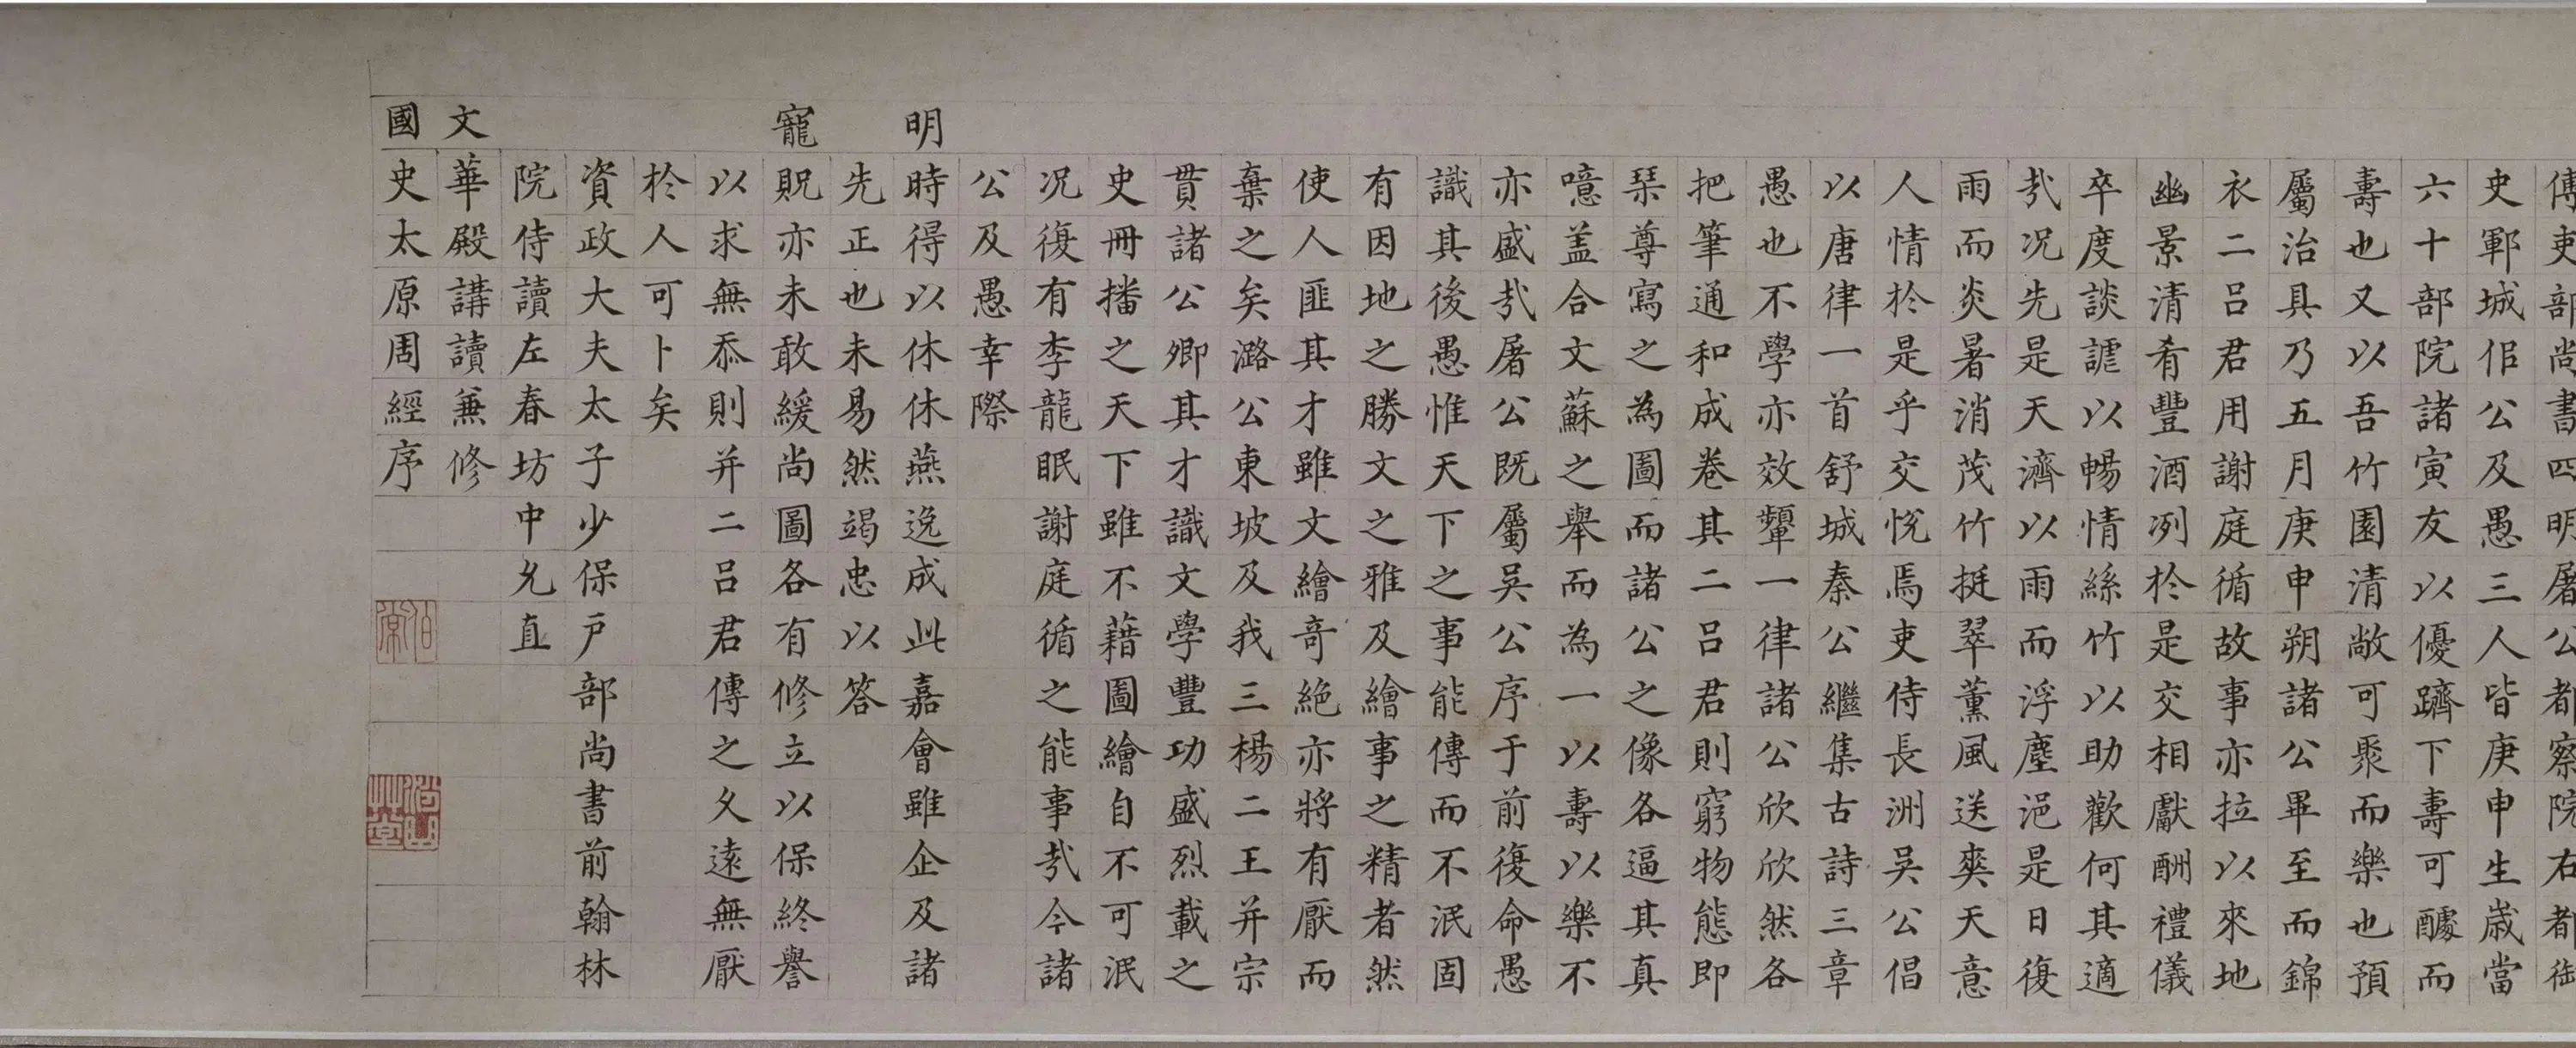 傅吏部尚書四明屠公都察院右都御
史鄆城佀公及愚三人皆庚申生歲當
六十部院諸寅友以優躋下壽可醵而
壽也又以吾竹園清敞可聚而樂也預
屬治具乃五月庚申朔諸公畢至而錦
衣二呂君用謝庭循故事亦拉以來地
幽景清肴豐酒冽於是交相獻酬禮儀
卒度談謔以暢情絲竹以助歡何其適
㢤况先是天濟以雨而浮塵浥是日復
雨而炎暑消茂竹挺翠薰風送爽天意
人情於是乎交悅焉吏侍長洲吳公倡
以唐律一首舒城秦公繼集古詩三章
愚也不學亦效顰一律諸公欣欣然各
把筆通和成卷其二呂君則窮物態即
琹尊寫之為圖而諸公之像各逼其真
噫盖合文蘇之舉而為一以壽以樂不
亦盛㢤屠公既屬吳公序于前復命愚
識其後愚惟天下之事能傳而不泯固
有因地之勝文之雅及繪事之精者然
使人匪其才雖文繪奇絶亦將有厭而
棄之矣潞公東坡及我三楊二王并宗
貫諸公卿其才識文學豐功盛烈載之
史冊播之天下雖不藉圖繪自不可泯
况復有李龍眠謝庭循之能事㢤今諸
公及愚幸際
明時得以休休燕逸成此嘉會雖企及諸
先正也未易然竭忠以答
寵貺亦未敢緩尚圖各有修立以保終譽
以求無忝則并二呂君傳之久遠無厭
於人可卜矣
資政大夫太子少保戶部尚書前翰林
院侍讀左春坊中允直
文華殿講讀兼修
國史太原周經序
伯常